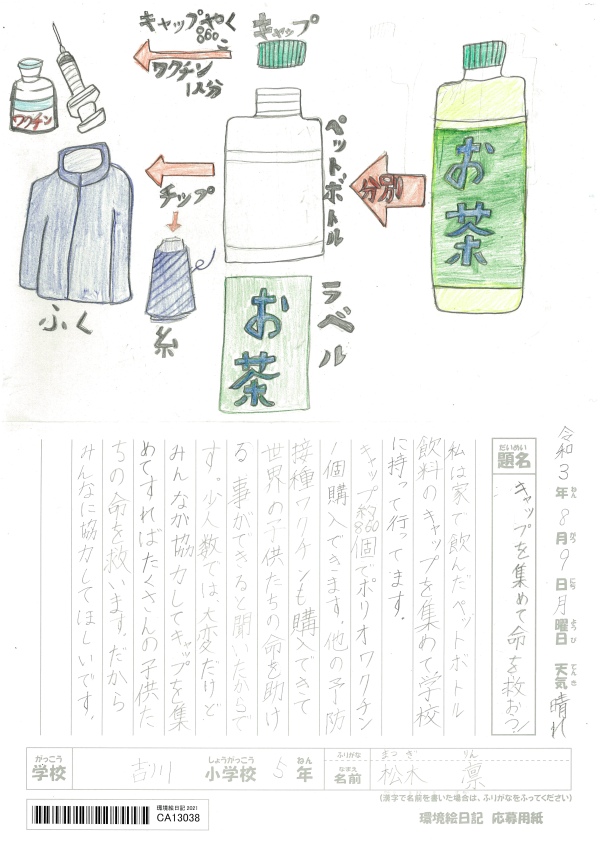 キャップやく
860こ
ワクチン
1人分
キャップ
ワクチン
ペットボトル
分別
お茶
チップ
ふく
糸
ラベル
お茶
令和3年8月9日月曜日 天気晴れ
ねん がつ にち ようび てんき
だいめい
題名
キャップを集めて命を救おう!
私は家で飲んだペットボトル
飲料のキャップを集めて学校
に持って行ってます。
キャップ約860個でポリオワクチン
1個購入できます。他の予防
接種ワクチンも購入できて
世界の子供たちの命を助け
る事ができると聞いたからで
す。少人数では、大変だけど
みんなが協力してキャップを集
めてすればたくさんの子供た
ちの命を救います。だから
みんなに協力してほしいです。
がっこう
学校
吉川
しょうがっこう
小学校
5
ねん
年
ふりがな
まつき りん
なまえ
名前
松木 凛
(漢字で名前を書いた場合は、ふりがなをふってください)
環境絵日記 2021
CA13038
環境絵日記 応募用紙